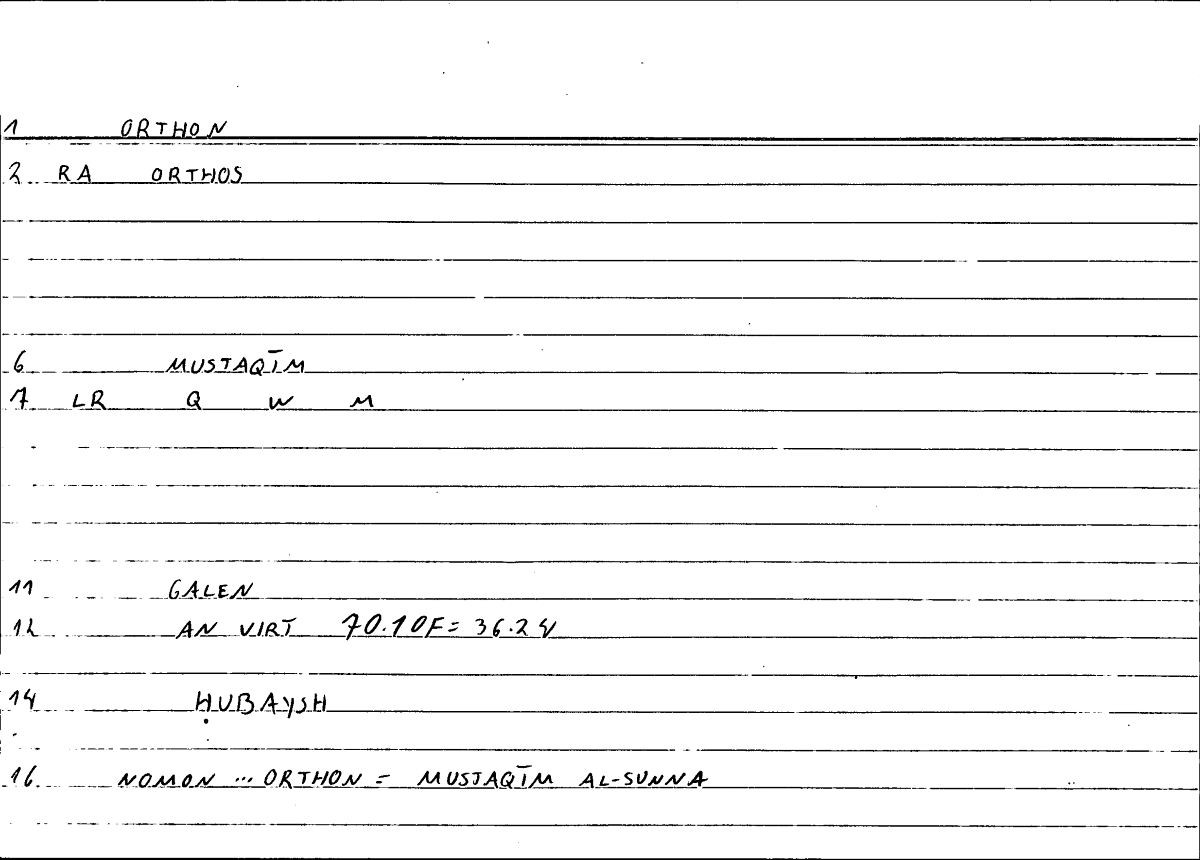 1 ORTHON
2 RA ORTHOS
6 MUSTAQĪM
7 LR Q W M
11 GALEN
12 AN VIRT 70.10F= 36.24
14 ḤUBAYSH
16 NOMON ... ORTHON = MUSTAQĪM AL-SUNNA